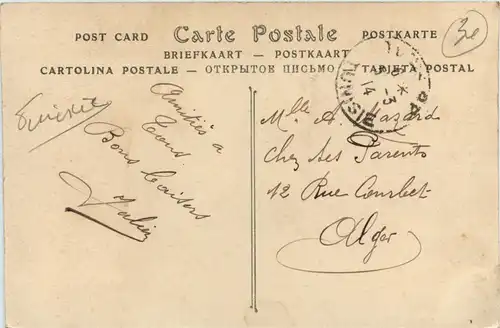 POST CARD Carte Postale POSTKARTE
BRIEFKAART — POSTKAART
CARTOLINA POSTALE — ОТКРЫТОЕ ПИСЬМО — TARJETA POSTAL
3e
TUNISIE
3 14
Amitiés à
Tous.
Bons baisers
Mlle A. Mazard
chez ses Parents
12 Rue Courbet
Alger